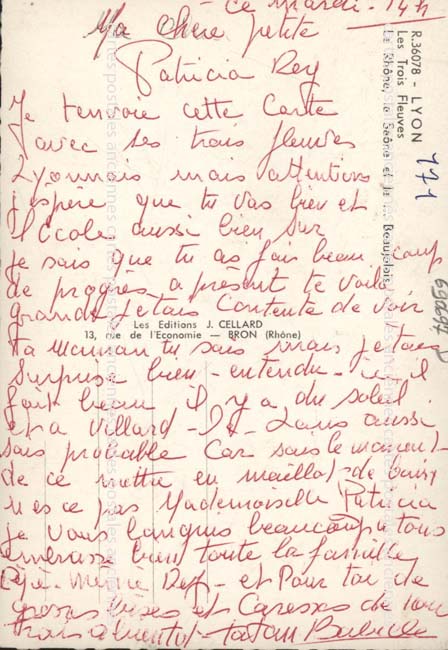 ce mardi - 14h
Ma chère petite
Patricia Rey
Je t'envoie cette Carte
avec ses trois fleuves
Lyonnais mais attentions
j'espère que tu vas bien et
l'école aussi bien sur
je sais que tu as fais beaucoup
de progrès a présent te voila
grande j'etais Contente de voir
ta maman tu sais mais j'etais
surprise bien - entendu - ici il
fait beau il y a du soleil
et a Villard - De - Lans aussi
sais probable Car sais le moment
de ce mettre en maillot de bain
n'es ce pas Mademoiselle Patricia
je vous beaucoup tous
embrasse bien toute la famille
Rey - et Pour toi de
grosses bises et Caresses de
a bientot - tatan
R.36078 - LYON
Les Trois Fleuves
Le Rhône, la Saône et le Beaujolais
171
Les Editions J. CELLARD
13, rue de l'Economie — BRON (Rhône)